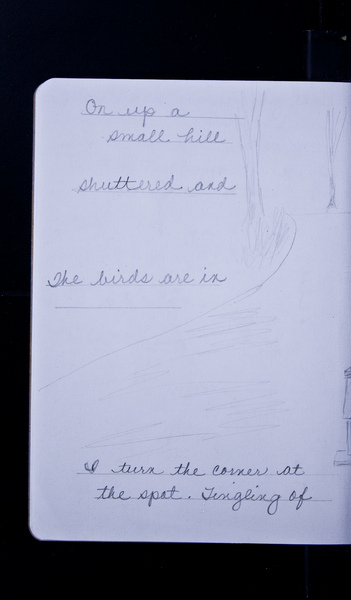 On up a
small hill
shuttered and
The birds are in
I turn the corner at
the spot. Tingling of